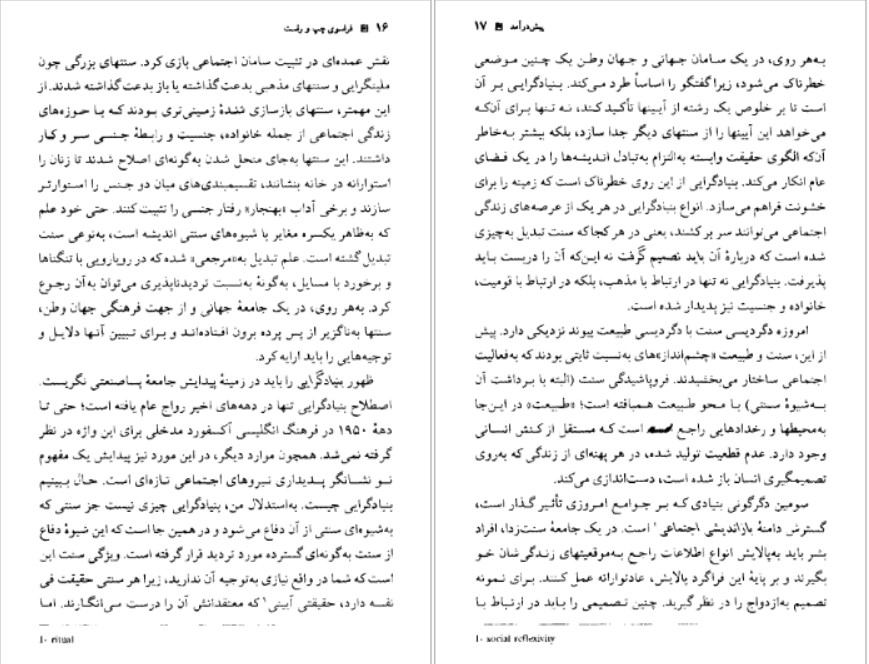 ۱۶ فراسوی چپ و راست
نقش عمده‌ای در تثبیت سامان اجتماعی بازی کرد. سنتهای بزرگی چون
ملیتگرایی و سنتهای مذهبی بدعت‌گذاشته یا باز بدعت‌گذاشته شدند. از
این مهمتر، سنتهای بازسازی شدهٔ زمینی‌تری بودند که با حوزه‌های
زندگی اجتماعی از جمله خانواده، جنسیت و رابطهٔ جنسی سر و کار
داشتند. این سنتها به‌جای منحل شدن به‌گونه‌ای اصلاح شدند تا زنان را
استوارانه در خانه بنشانند، تقسیمبندی‌های میان دو جنس را استوارتر
سازند و برخی آداب «بهنجار» رفتار جنسی را تثبیت کنند. حتی خود علم
که به‌ظاهر یکسره مغایر با شیوه‌های سنتی اندیشه است، به‌نوعی سنت
تبدیل گشته است. علم تبدیل به«مرجعی» شده که در رویارویی با تنگناها
و برخورد با مسایل، به‌گونهٔ به‌نسبت تردیدناپذیری می‌توان به‌آن رجوع
کرد. به‌هر روی، در یک جامعهٔ جهانی و از جهت فرهنگی جهان وطن،
سنتها به‌ناگزیر از پس پرده برون افتاده‌اند و برای تبیین آنها دلایل و
توجیه‌هایی را باید ارایه کرد.
ظهور بنیادگرایی را باید در زمینهٔ پیدایش جامعهٔ پساصنعتی نگریست.
اصطلاح بنیادگرایی تنها در دهه‌های اخیر رواج عام یافته است؛ حتی تا
دههٔ ۱۹۵۰ در فرهنگ انگلیسی آکسفورد مدخلی برای این واژه در نظر
گرفته نمی‌شد. همچون موارد دیگر، در این مورد نیز پیدایش یک مفهوم
نو نشانگر پدیداری نیروهای اجتماعی تازه‌ای است. حال ببینیم
بنیادگرایی چیست. به‌استدلال من، بنیادگرایی چیزی نیست جز سنتی که
به‌شیوه‌ای سنتی از آن دفاع می‌شود و در همین جا است که این شیوهٔ دفاع
از سنت به‌گونه‌ای گسترده مورد تردید قرار گرفته است. ویژگی سنت این
است که شما در واقع نیازی به‌توجیه آن ندارید، زیرا هر سنتی حقیقت فی
نفسه دارد، حقیقتی آیینی۱ که معتقدانش آن را درست می‌انگارند. اما
1- ritual
پیش‌درآمد ۱۷
به‌هر روی، در یک سامان جهانی و جهان وطن یک چنین موضعی
خطرناک می‌شود، زیرا گفتگو را اساساً طرد می‌کند. بنیادگرایی بر آن
است تا بر خلوص یک رشته از آیینها تأکید کند، نه تنها برای آن‌که
می‌خواهد این آیینها را از سنتهای دیگر جدا سازد، بلکه بیشتر به‌خاطر
آن‌که الگوی حقیقت وابسته به‌التزام به‌تبادل اندیشه‌ها را در یک فضای
عام انکار می‌کند. بنیادگرایی از این روی خطرناک است که زمینه را برای
خشونت فراهم می‌سازد. انواع بنیادگرایی در هر یک از عرصه‌های زندگی
اجتماعی می‌توانند سر برکشند، یعنی در هر کجا که سنت تبدیل به‌چیزی
شده است که دربارهٔ آن باید تصمیم گرفت نه این‌که آن را دربست باید
پذیرفت. بنیادگرایی نه تنها در ارتباط با مذهب، بلکه در ارتباط با قومیت،
خانواده و جنسیت نیز پدیدار شده است.
امروزه دگردیسی سنت با دگردیسی طبیعت پیوند نزدیکی دارد. پیش
از این، سنت و طبیعت «چشم‌انداز»های به‌نسبت ثابتی بودند که به‌فعالیت
اجتماعی ساختار می‌بخشیدند. فروپاشیدگی سنت (البته با برداشت آن
به‌شیوهٔ سنتی) با محو طبیعت همبافته است؛ «طبیعت» در این‌جا
به‌محیطها و رخدادهایی راجع است که مستقل از کنش انسانی
وجود دارد. عدم قطعیت تولید شده، در هر پهنه‌ای از زندگی که به‌روی
تصمیمگیری انسان باز شده است، دست‌اندازی می‌کند.
سومین دگرگونی بنیادی که بر جوامع امروزی تأثیر گذار است،
گسترش دامنهٔ بازاندیشی اجتماعی۱ است. در یک جامعهٔ سنت‌زدا، افراد
بشر باید به‌پالایش انواع اطلاعات راجع به‌موقعیتهای زندگی‌شان خو
بگیرند و بر پایهٔ این فراگرد پالایش، عادتوارانه عمل کنند. برای نمونه
تصمیم به‌ازدواج را در نظر گیرید. چنین تصمیمی را باید در ارتباط با
1- social reflexivity